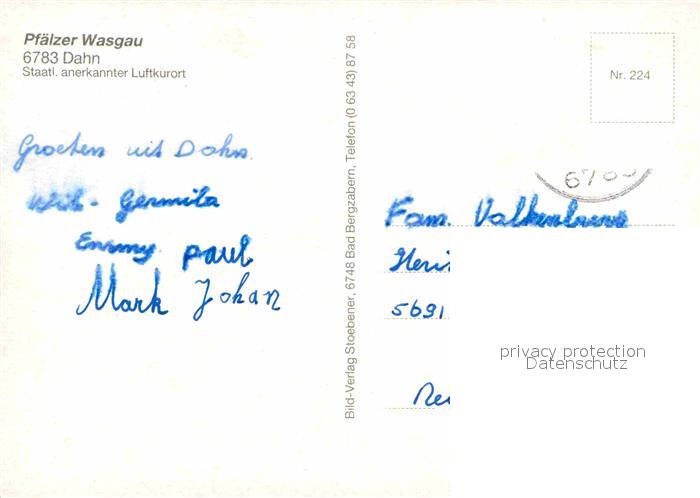 Pfälzer Wasgau
6783 Dahn
Staatl. anerkannter Luftkurort
Nr. 224
Bild-Verlag Stoebener, 6748 Bad Bergzabern, Telefon (0 63 43) 87 58
Groeten uit Dahn.
Germila
Emmy paul
Mark Johan
Fam.
5691
privacy protection
Datenschutz